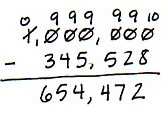 0 9 9 9 9 9 10
1,000,000
- 345,528
654,472